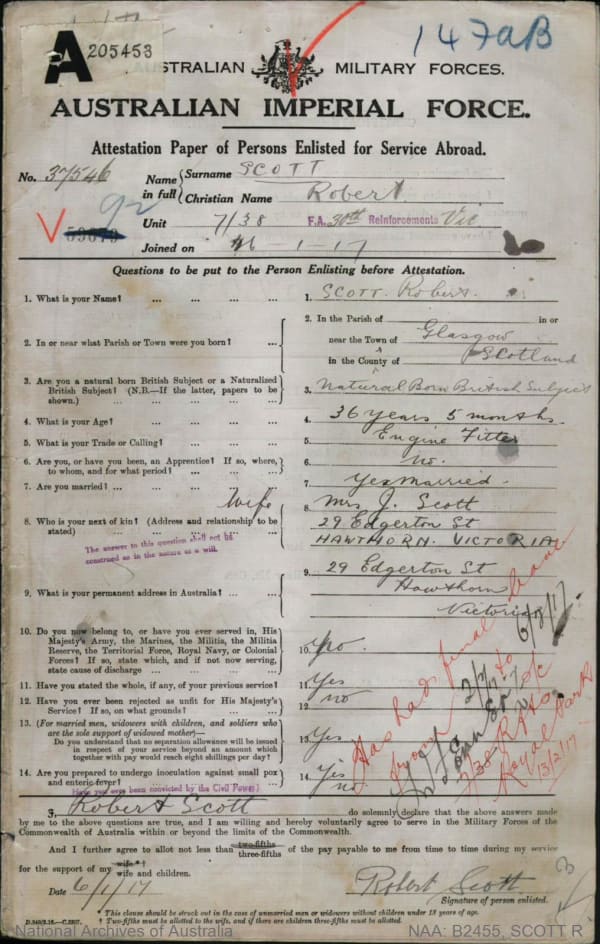 147aB
A 205453
AUSTRALIAN MILITARY FORCES.
AUSTRALIAN IMPERIAL FORCE.
Attestation Paper of Persons Enlisted for Service Abroad.
No. 37546 Name in full { Surname SCOTT
Christian Name Robert
Unit 7/38 F.A. 30th Reinforcements Vic
Joined on 6-1-17
Questions to be put to the Person Enlisting before Attestation.
1. What is your Name? ... ... ... ... 1. SCOTT. Robert.
2. In or near what Parish or Town were you born? ... 2. In the Parish of in or
near the Town of Glasgow
in the County of Scotland
3. Are you a natural born British Subject or a Naturalized
British Subject? (N.B.—If the latter, papers to be
shown.) ... ... ... ... 3. Natural Born British Subject
4. What is your Age? ... ... ... ... 4. 36 years 5 months.
5. What is your Trade or Calling? ... ... ... 5. Engine Fitter
6. Are you, or have you been, an Apprentice? If so, where,
to whom, and for what period? ... ... ... 6. no.
7. Are you married? ... ... ... ... 7. Yes married.
wife
8. Who is your next of kin? (Address and relationship to be
stated) 8. Mrs J. Scott
29 Edgerton St
HAWTHORN. VICTORIA
The answer to this question shall not be
construed as in the nature of a will.
9. What is your permanent address in Australia? ... ... 9. 29 Edgerton St
Hawthorn
Victoria
10. Do you now belong to, or have you ever served in, His
Majesty's Army, the Marines, the Militia, the Militia
Reserve, the Territorial Force, Royal Navy, or Colonial
Forces? If so, state which, and if not now serving,
state cause of discharge ... ... ... 10. No.
11. Have you stated the whole, if any, of your previous service? 11. Yes
12. Have you ever been rejected as unfit for His Majesty's
Service? If so, on what grounds? ... ... 12. no
13. (For married men, widowers with children, and soldiers who
are the sole support of widowed mother)—
Do you understand that no separation allowance will be issued
in respect of your service beyond an amount which
together with pay would reach eight shillings per day? 13. Yes
14. Are you prepared to undergo inoculation against small pox
and enteric fever? 14. Yes
Have you ever been convicted by the Civil Power? no
Has had final leave
from
to
6/8/17
Royal Park
13/2/17
I, Robert Scott do solemnly declare that the above answers made
by me to the above questions are true, and I am willing and hereby voluntarily agree to serve in the Military Forces of the
Commonwealth of Australia within or beyond the limits of the Commonwealth.
And I further agree to allot not less than two-fifths three-fifths of the pay payable to me from time to time during my service
for the support of my wife*† wife and children.
Date 6/1/17 Robert Scott
Signature of person enlisted.
* This clause should be struck out in the case of unmarried men or widowers without children under 18 years of age.
† Two-fifths must be allotted to the wife, and if there are children three-fifths must be allotted.
National Archives of Australia NAA: B2455, SCOTT R